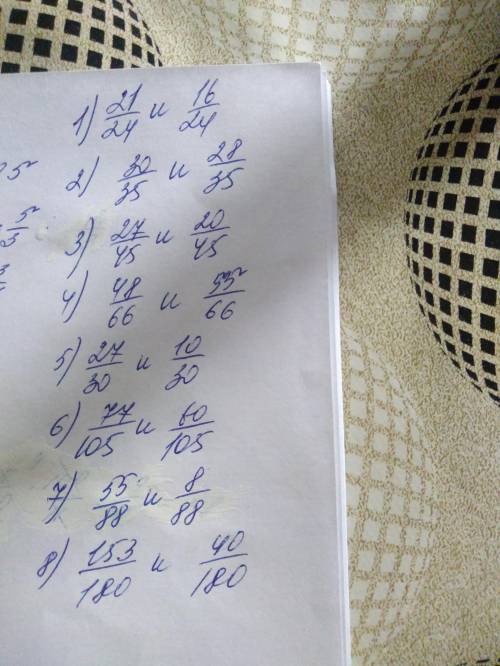 1) 21/24 и 16/24
2) 30/35 и 28/35
3) 27/45 и 20/45
4) 48/66 и 55/66
5) 27/30 и 10/30
6) 77/105 и 60/105
7) 55/88 и 8/88
8) 153/180 и 40/180